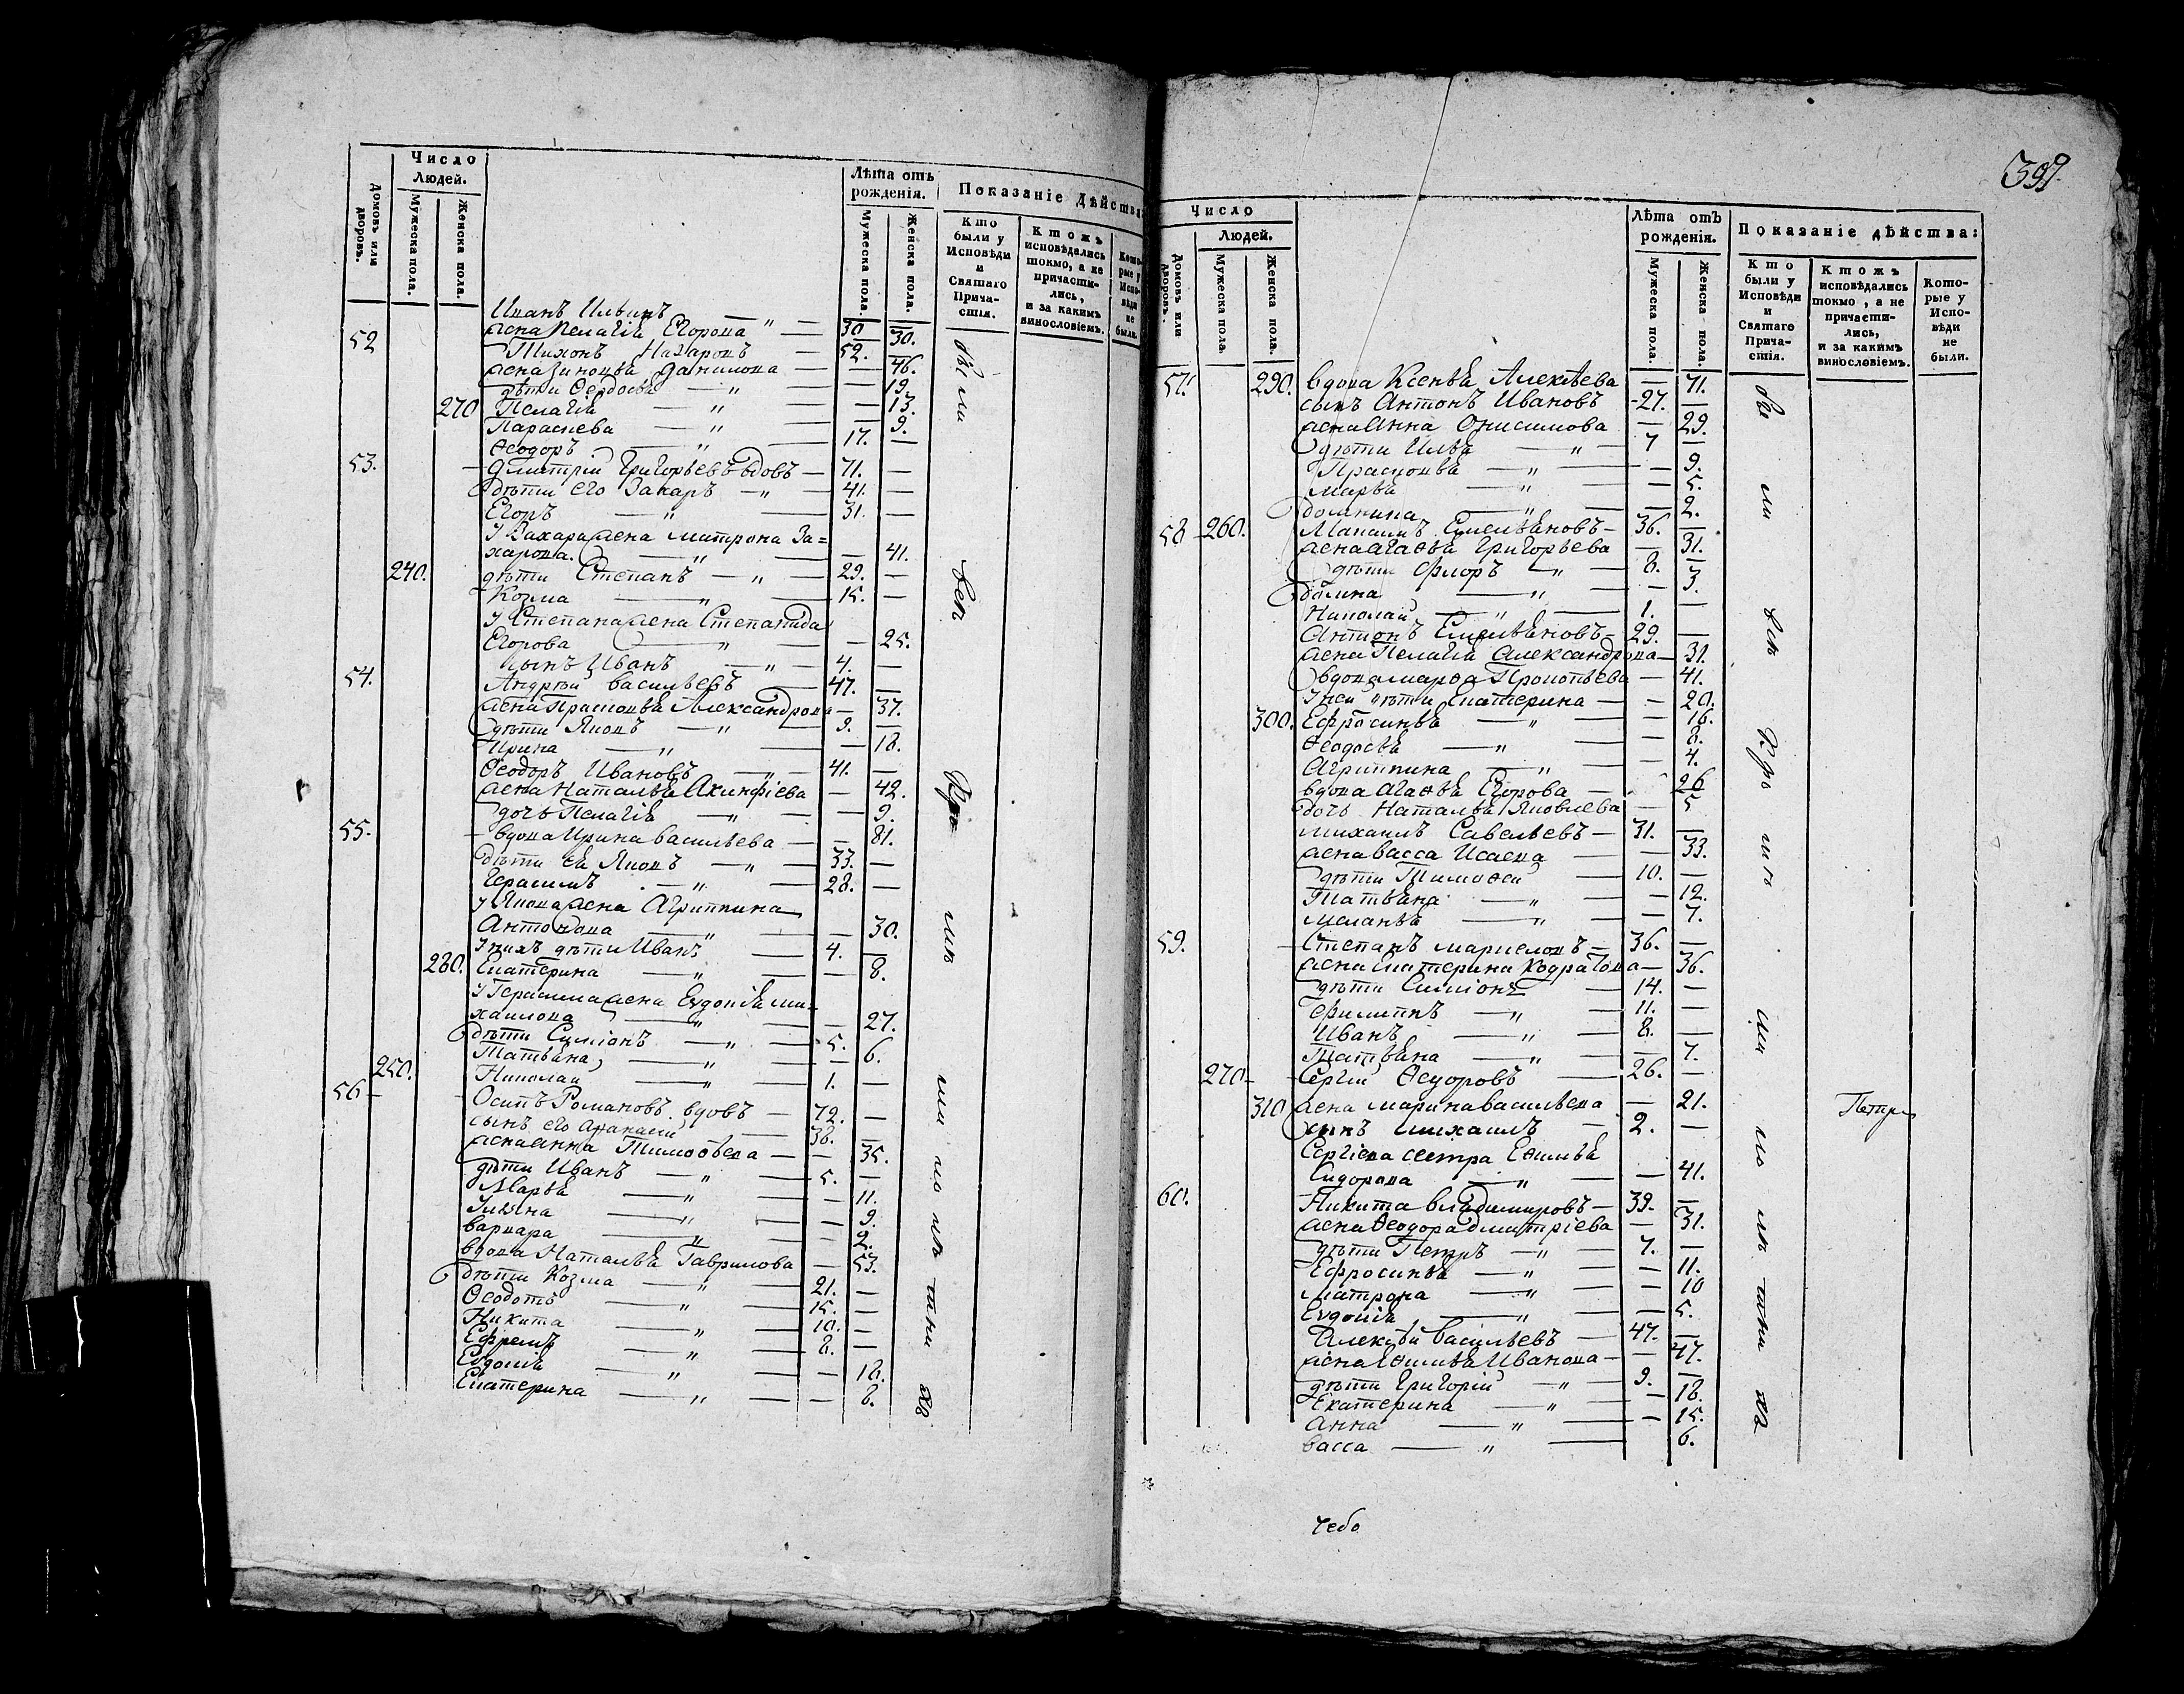 Число
Людей.
Домовъ или дворовъ.
Мужеска пола.
Женска пола.
Лѣта отъ рожденія.
Мужеска пола.
Женска пола.
Показаніе дѣйства
Кто были у Исповѣди и Святаго Причастія.
Ктожъ исповѣдались токмо, а не причастились, и за какимъ винословіемъ.
Которые у Исповѣди не были.
Иванъ Ильинъ — 30
жена Пелагія Егорова — 30.
52 Тихонъ Назаровъ — 52.
жена Зиновья Данилова — 46.
дѣти Ѳедосья — 19.
270 Пелагія — 13.
Параскева — 9.
Ѳеодоръ — 17.
53. Дмитрій Григорьевъ вдовъ — 71.
дѣти его Захаръ — 41.
Егоръ — 31.
У Захара жена Матрона За=
харова. — 41.
240. дѣти Степанъ — 29.
Козма — 15.
У Степана жена Степанида
Егорова — 25.
сынъ Иванъ — 4.
54. Андрей Васильевъ — 47.
жена Прасковья Александрова — 37.
дѣти Яковъ — 9.
Ирина — 18.
Ѳеодоръ Ивановъ — 41.
жена Наталья Акинфіева — 42.
дочь Пелагія — 9.
55. вдова Ирина Васильева — 81.
дѣти ея Яковъ — 33.
Герасимъ — 28.
У Якова жена Агриппина
Антонова — 30.
У нихъ дѣти Иванъ — 4.
280. Екатерина — 8.
У Герасима жена Евдокія Ми-
хаилова — 27.
дѣти Симіонъ — 5.
Татьяна — 6.
250. Николай — 1.
56 Осипъ Романовъ вдовъ — 72.
сынъ его Афанасій — 38.
жена Анна Тимоѳѣева — 35.
дѣти Иванъ — 5.
Марья — 11.
Ульяна — 9.
Варвара — 2.
вдова Наталья Гаврилова — 53.
дѣти Козма — 21.
Ѳеодотъ — 15.
Никита — 10.
Ефремъ — 8.
Евдокія — 18.
Екатерина — 8.
399.
Число
Людей.
Домовъ или дворовъ.
Мужеска пола.
Женска пола.
Лѣта отъ рожденія.
Мужеска пола.
Женска пола.
Показаніе дѣйства:
Кто были у Исповѣди и Святаго Причастія.
Ктожъ исповѣдались токмо, а не причастились, и за какимъ винословіемъ.
Которые у Исповѣди не были.
57. 290. вдова Ксенья Алексѣева — 71.
сынъ Антонъ Ивановъ — 27.
жена Анна Онисимова — 29.
дѣти Илья — 7
Прасковья — 9.
Марья — 5.
Домнина — 2.
58 260. Максимъ Емельяновъ — 36.
жена Агаѳья Григорьева — 31.
дѣти Флоръ — 8.
Домна — 3.
Николай — 1.
Антонъ Емельяновъ — 29.
жена Пелагія Александрова — 31.
вдова Марѳа Прокопьева — 41.
У неи дѣти Екатерина — 20.
300. Ефросинья — 16.
Ѳеодосья — 8.
Агриппина — 4.
вдова Агаѳья Егорова — 26
дочь Наталья Яковлева — 5
Михаилъ Савельевъ — 31.
жена Васса Исаева — 33.
дѣти Тимоѳей — 10.
Татьяна — 12.
Меланья — 7.
59. Степанъ Маркеловъ — 36.
жена Екатерина Кодратова — 36.
дѣти Симіонъ — 14.
Филиппъ — 11.
Иванъ — 8.
Татьяна — 7.
270 Сергій Ѳедоровъ — 26.
310 жена Марина Васильева — 21.
сынъ Михаилъ — 2.
Сергіева сестра Еѳимья
Сидорова — 41.
60. Никита Владимировъ — 39.
жена Ѳеодора Дмитріева — 31.
дѣти Петръ — 7.
Ефросинья — 11.
Матрона — 10
Евдокія — 5.
Алексѣй Васильевъ — 47.
жена Еѳимья Иванова — 47.
дѣти Григорій — 9.
Екатерина — 18.
Анна — 15.
Васса — 6.
чебо